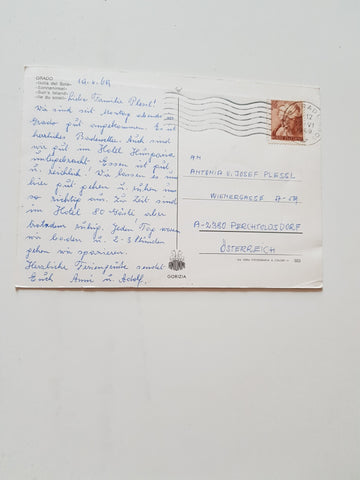 GRADO
«Isola del Sole»
«Sonneninsel»
«Sun's Island»
«Ile du soleil»
12.6.69
Liebe Familie Plessl!
Wir sind seit Montag abends
Grado gut angekommen. Es ist
herrliches Badewetter. Auch sind
wir gut im Hotel Hungaria
untergebracht. Essen ist gut
u. reichlich! Wir lassen es uns
hier gut gehen u. ruhen uns
so richtig aus. Zur Zeit sind
im Hotel 80 Gäste aber
trotzdem ruhig. Jeden Tag
wir baden u. 2-3 Stunden
gehen wir spazieren.
Herzliche Feriengrüße sendet
Euch Anni u. Adolf.
AN
ANTONIA U. JOSEF PLESSL
WIENERGASSE
A-2380 PERCHTOLDSDORF
ÖSTERREICH
GORIZIA